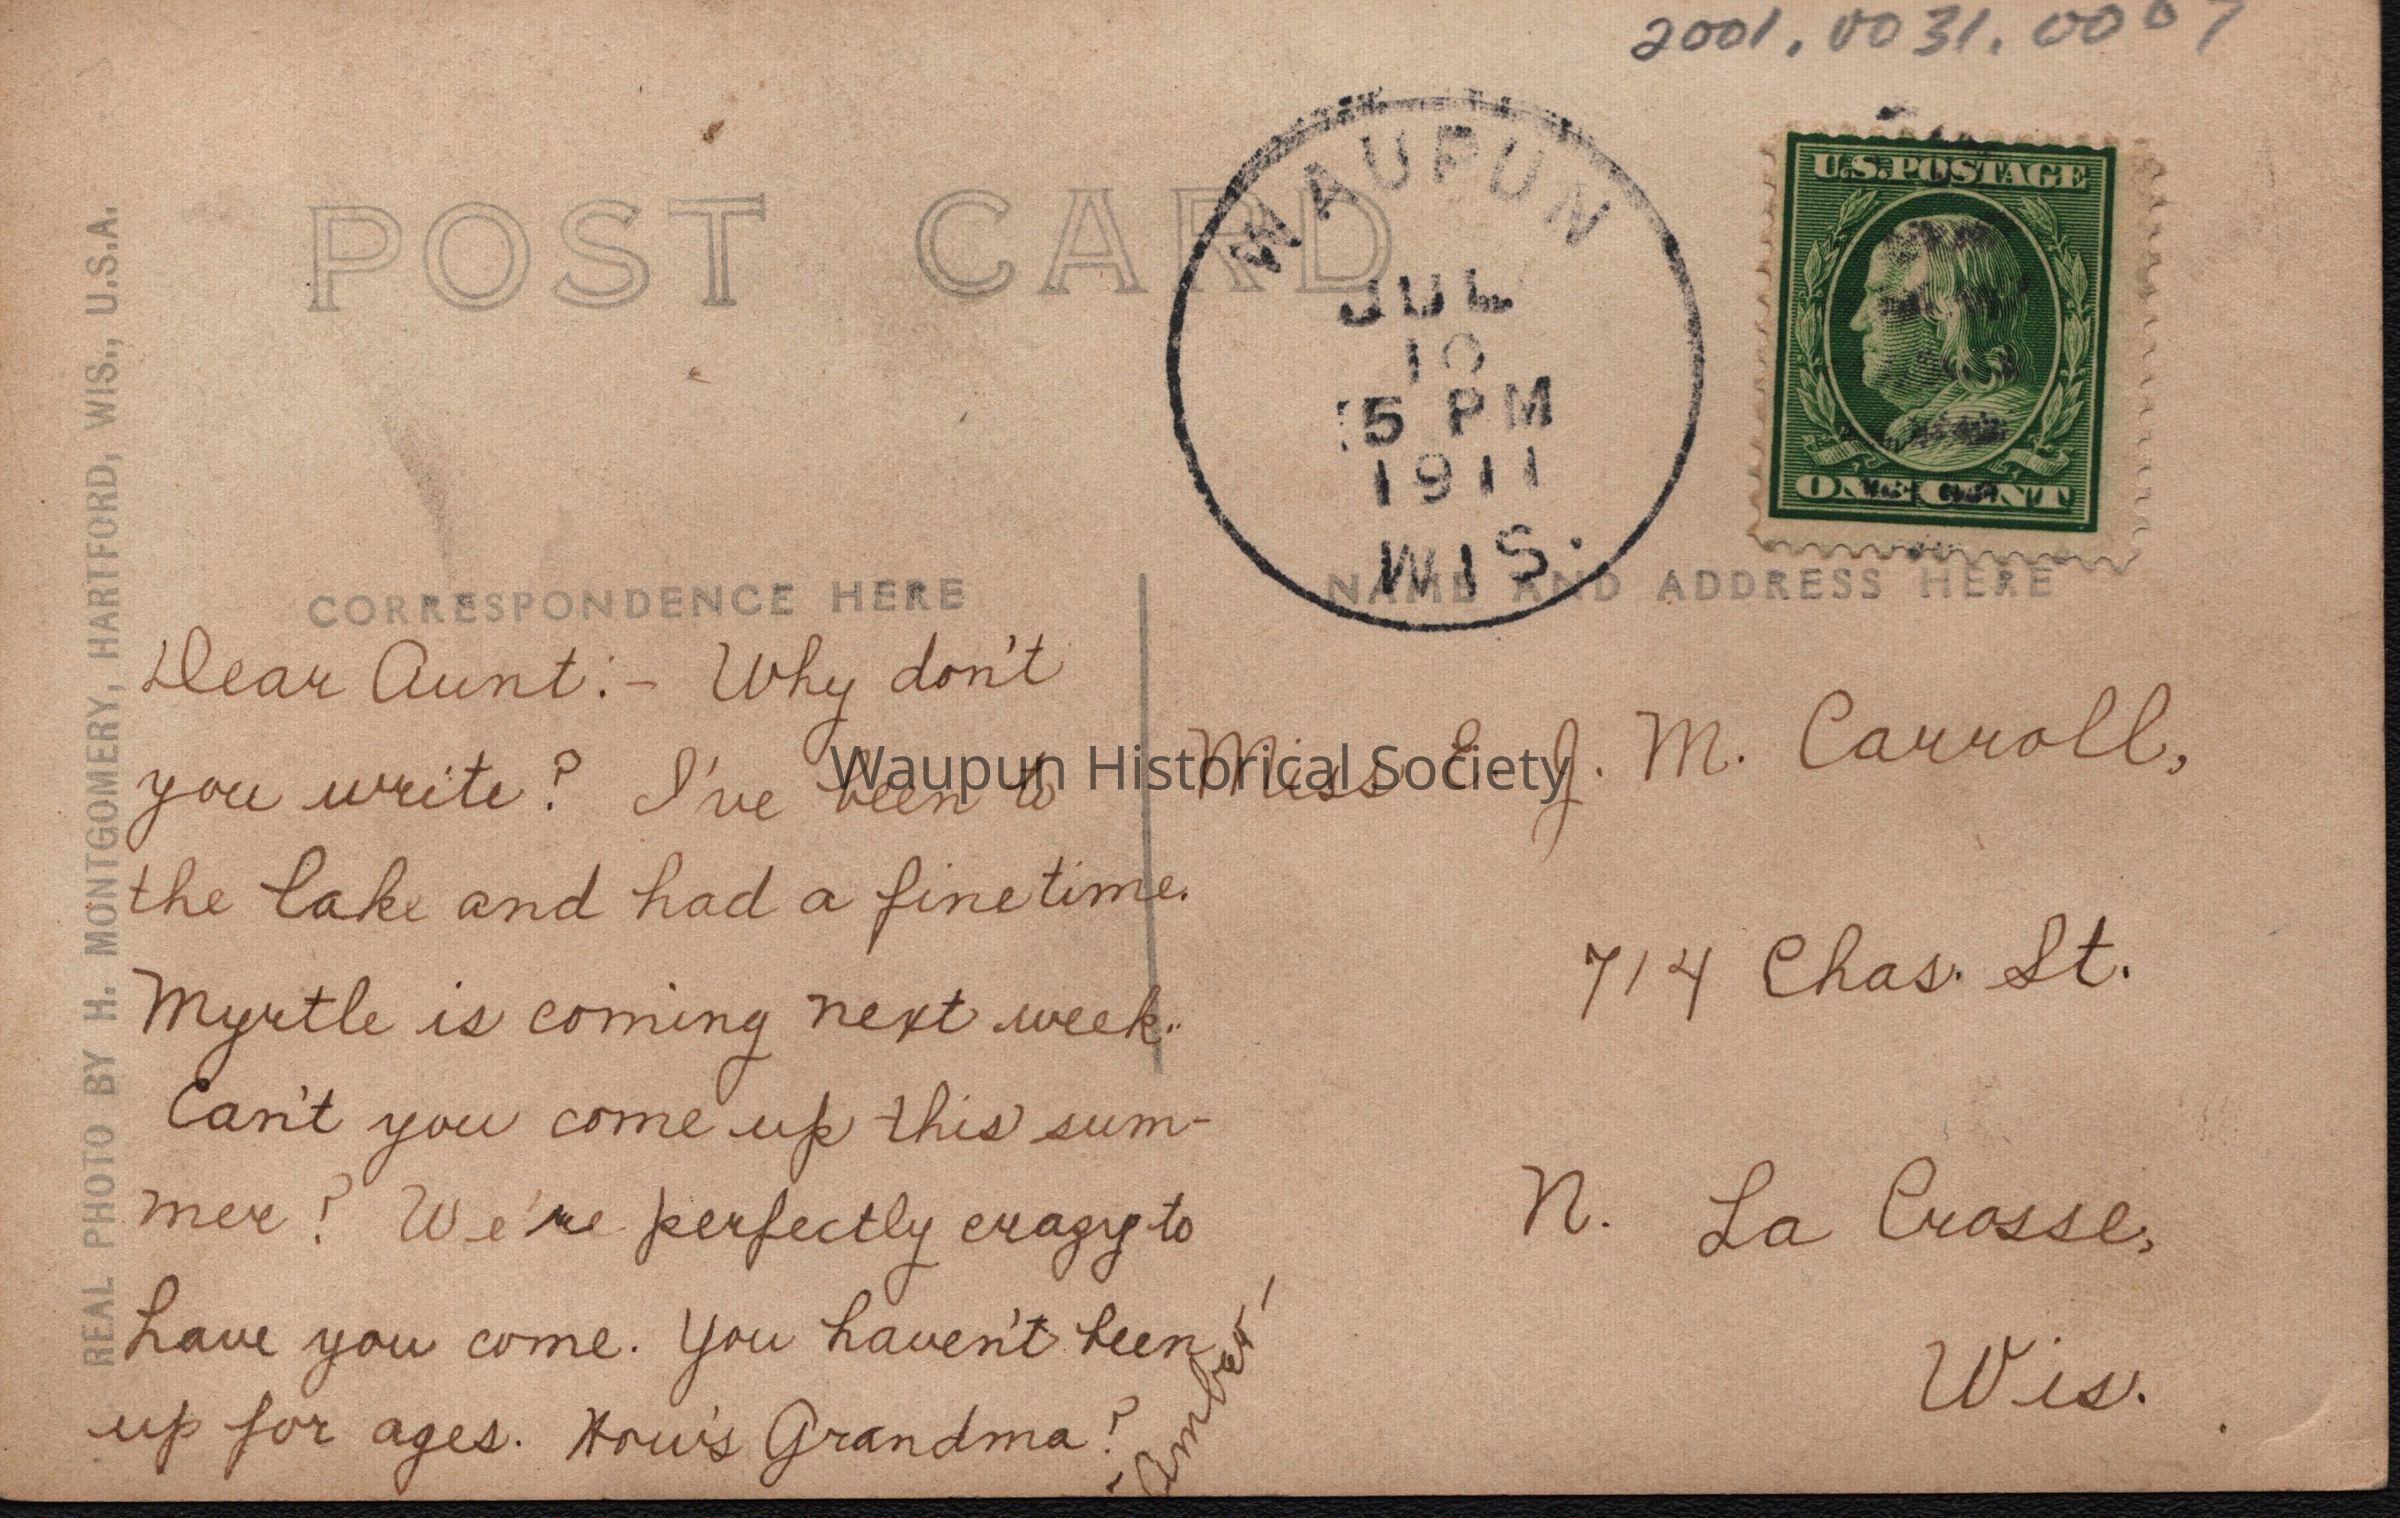 2001.0031.0007
POST CARD
WAUPUN
JUL
10
5 PM
1911
WIS.
U.S.POSTAGE
ONE CENT
REAL PHOTO BY H. MONTGOMERY, HARTFORD, WIS., U.S.A.
CORRESPONDENCE HERE
NAME AND ADDRESS HERE
Dear Aunt:- Why don't
you write? I've been to
the lake and had a fine time.
Myrtle is coming next week.
Can't you come up this sum-
mer? We're perfectly crazy to
have you come. You haven't been
up for ages. How's Grandma?
-Amber-
Miss E. J. M. Carroll,
714 Chas. St.
N. La Crosse,
Wis.
Waupun Historical Society